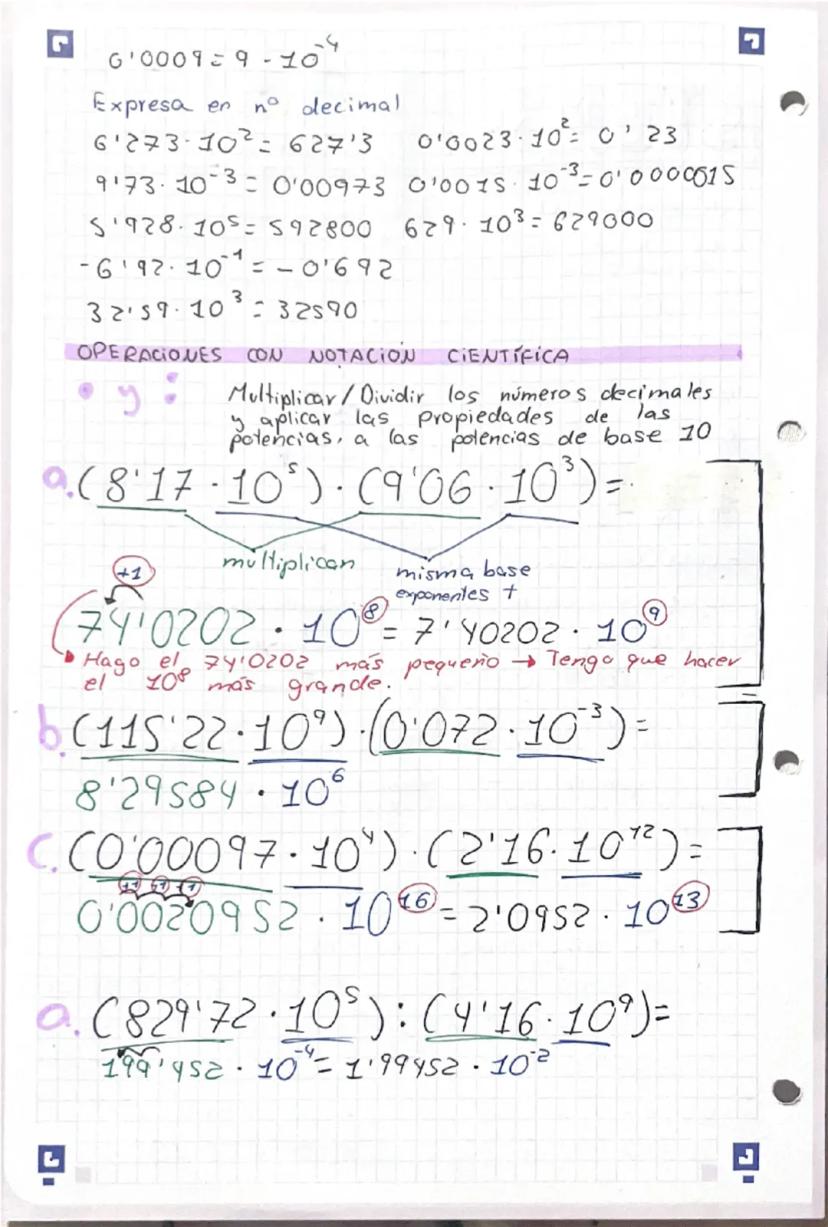 0'0009 = 9 · 10⁻⁴
Expresa en nº decimal
6'273 · 10² = 627'3 0'0023 · 10² = 0'23
9'73 · 10⁻³ = 0'00973 0'0015 · 10⁻³ = 0'0000015
5'928 · 10⁵ = 592800 629 · 10³ = 629000
-6'92 · 10⁻¹ = -0'692
32'59 · 10³ = 32590
OPERACIONES CON NOTACIÓN CIENTÍFICA
• y : Multiplicar/Dividir los números decimales
y aplicar las propiedades de las
potencias, a las potencias de base 10
a. (8'17 · 10⁵) · (9'06 · 10³) =
multiplican misma base
exponentes +
+1
74'0202 · 10⁸ = 7'40202 · 10⁹
Hago el 74'0202 más pequeño → Tengo que hacer
el 10⁸ más grande.
b. (115'22 · 10⁹) · (0'072 · 10⁻³) =
8'29584 · 10⁶
c. (0'00097 · 10⁴) · (2'16 · 10¹²) =
+1 +1 +1
0'0020952 · 10¹⁶ = 2'0952 · 10¹³
a. (829'72 · 10⁵) : (4'16 · 10⁹) =
199'452 · 10⁻⁴ = 1'99452 · 10⁻²